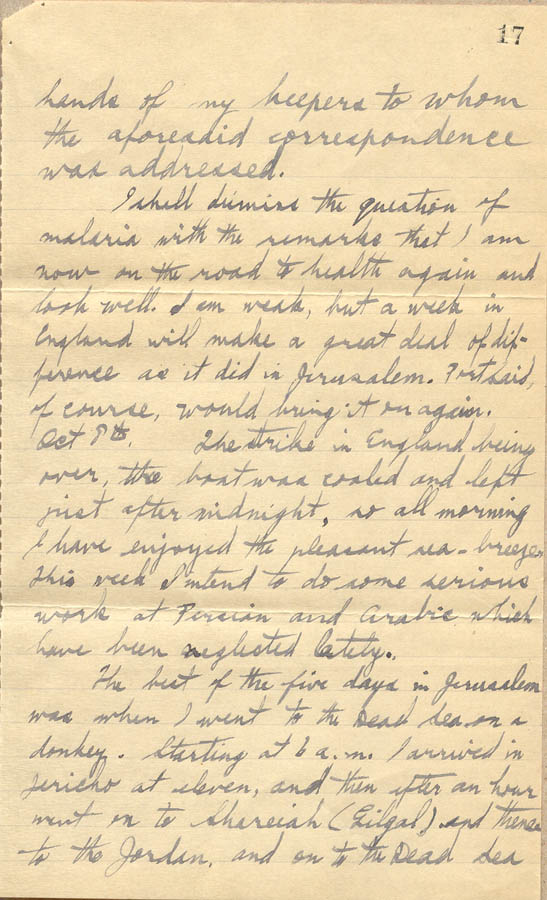 17
hands of my keepers to whom
the aforesaid correspondence
was addressed.
I shall dismiss the question of
malaria with the remarks that I am
now on the road to health again and
look well. I am weak, but a week in
England will make a great deal of dif-
ference as it did in Jerusalem. Port Said,
of course, would bring it on again.
Oct 9th. The strike in England being
over, the boat was coaled and left
just after midnight, so all morning
I have enjoyed the pleasant sea-breeze.
This week I intend to do some serious
work at Persian and Arabic which
have been neglected lately.
The best of the five days in Jerusalem
was when I went to the Dead Sea on a
donkey. Starting at 6 a.m. I arrived in
Jericho at eleven, and then after an hour
went on to Shareiah (Gilgal) and thence
to the Jordan, and on to the Dead Sea